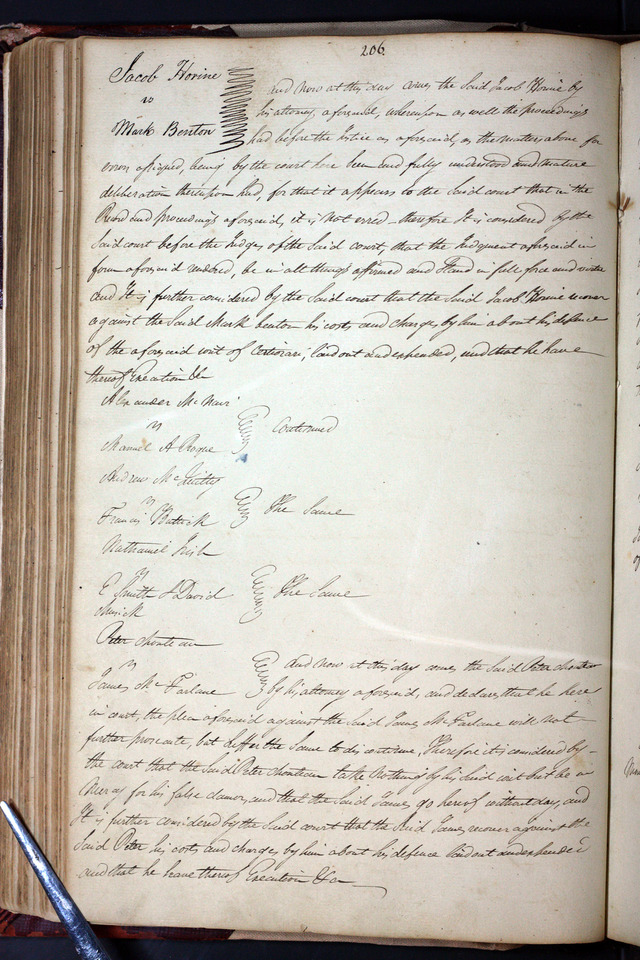 206
Jacob Horine
vs
Mark Benton
and now at this day comes the Said Jacob Horine by
his attorney aforesaid, whereupon as well the proceedings
had before the Justice as aforesaid, as the matters above for
error assigned, being by the court here Seen and fully understood and mature
deliberation thereupon had, for that it appears to the Said court that in the
Record and proceedings aforesaid, it is not erred - therefore It is considered by the
Said court before the Judges of the Said court, that the Judgment aforesaid in
form aforesaid rendered, be in all things affirmed and Stand in full force and
and It is further considered by the Said court that the Said Jacob Horine recover
against the Said Mark benton his costs and charges by him about his defence
of the aforesaid writ of Certiorari, laid out and expended, and that he have
thereof Execution &c
Alexander McNair
vs
Manuel A Roque
Continued
Andrew McQuitty
vs
Francis
The Same
Nathaniel
vs
E Smith & David
Musick
The Same
Peter Chouteau
vs
James McFarlane
and now at this day comes the Said Peter Chouteau
by his attorney aforesaid, and declares that he here
in court, the plea aforesaid against the Said James McFarlane will not
further prosecute, but Suffer the Same to discontinue, Therefore it is considered by
the court that the Said Peter Chouteau take nothing by his Said writ but be in
Mercy for his false clamor, and that the Said James go hereof without day, and
It is further considered by the Said court that the Said James recover against the
Said Peter his costs and charges by him about his defence laid out and expended
and that he have thereof Execution &c